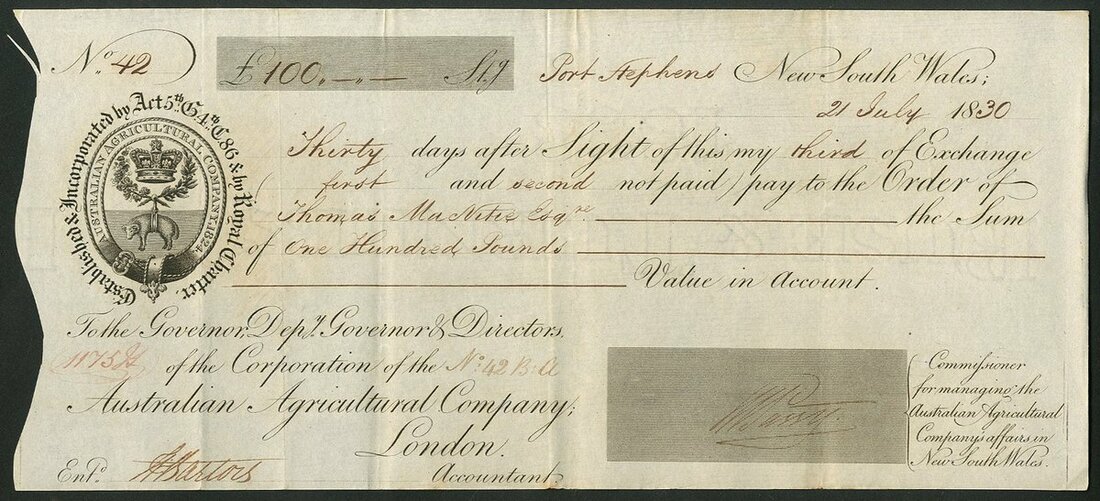 No. 42
£100.-.- Stg
Port Stephens New South Wales;
21 July 1830
Established & Incorporated by Act 5th G4th C86 & by Royal Charter.
AUSTRALIAN AGRICULTURAL COMPANY. 1824.
Thirty days after Sight of this, my third of Exchange
(first and second not paid) pay to the Order of
Thomas Esqre the Sum
of One Hundred Pounds
Value in Account.
To the Governor, Depy. Governor & Directors,
1175 of the Corporation of the No. 42 B.A
Australian Agricultural Company;
London.
Commissioner
for managing the
Australian Agricultural
Company's affairs in
New South Wales.
Entd. Accountant